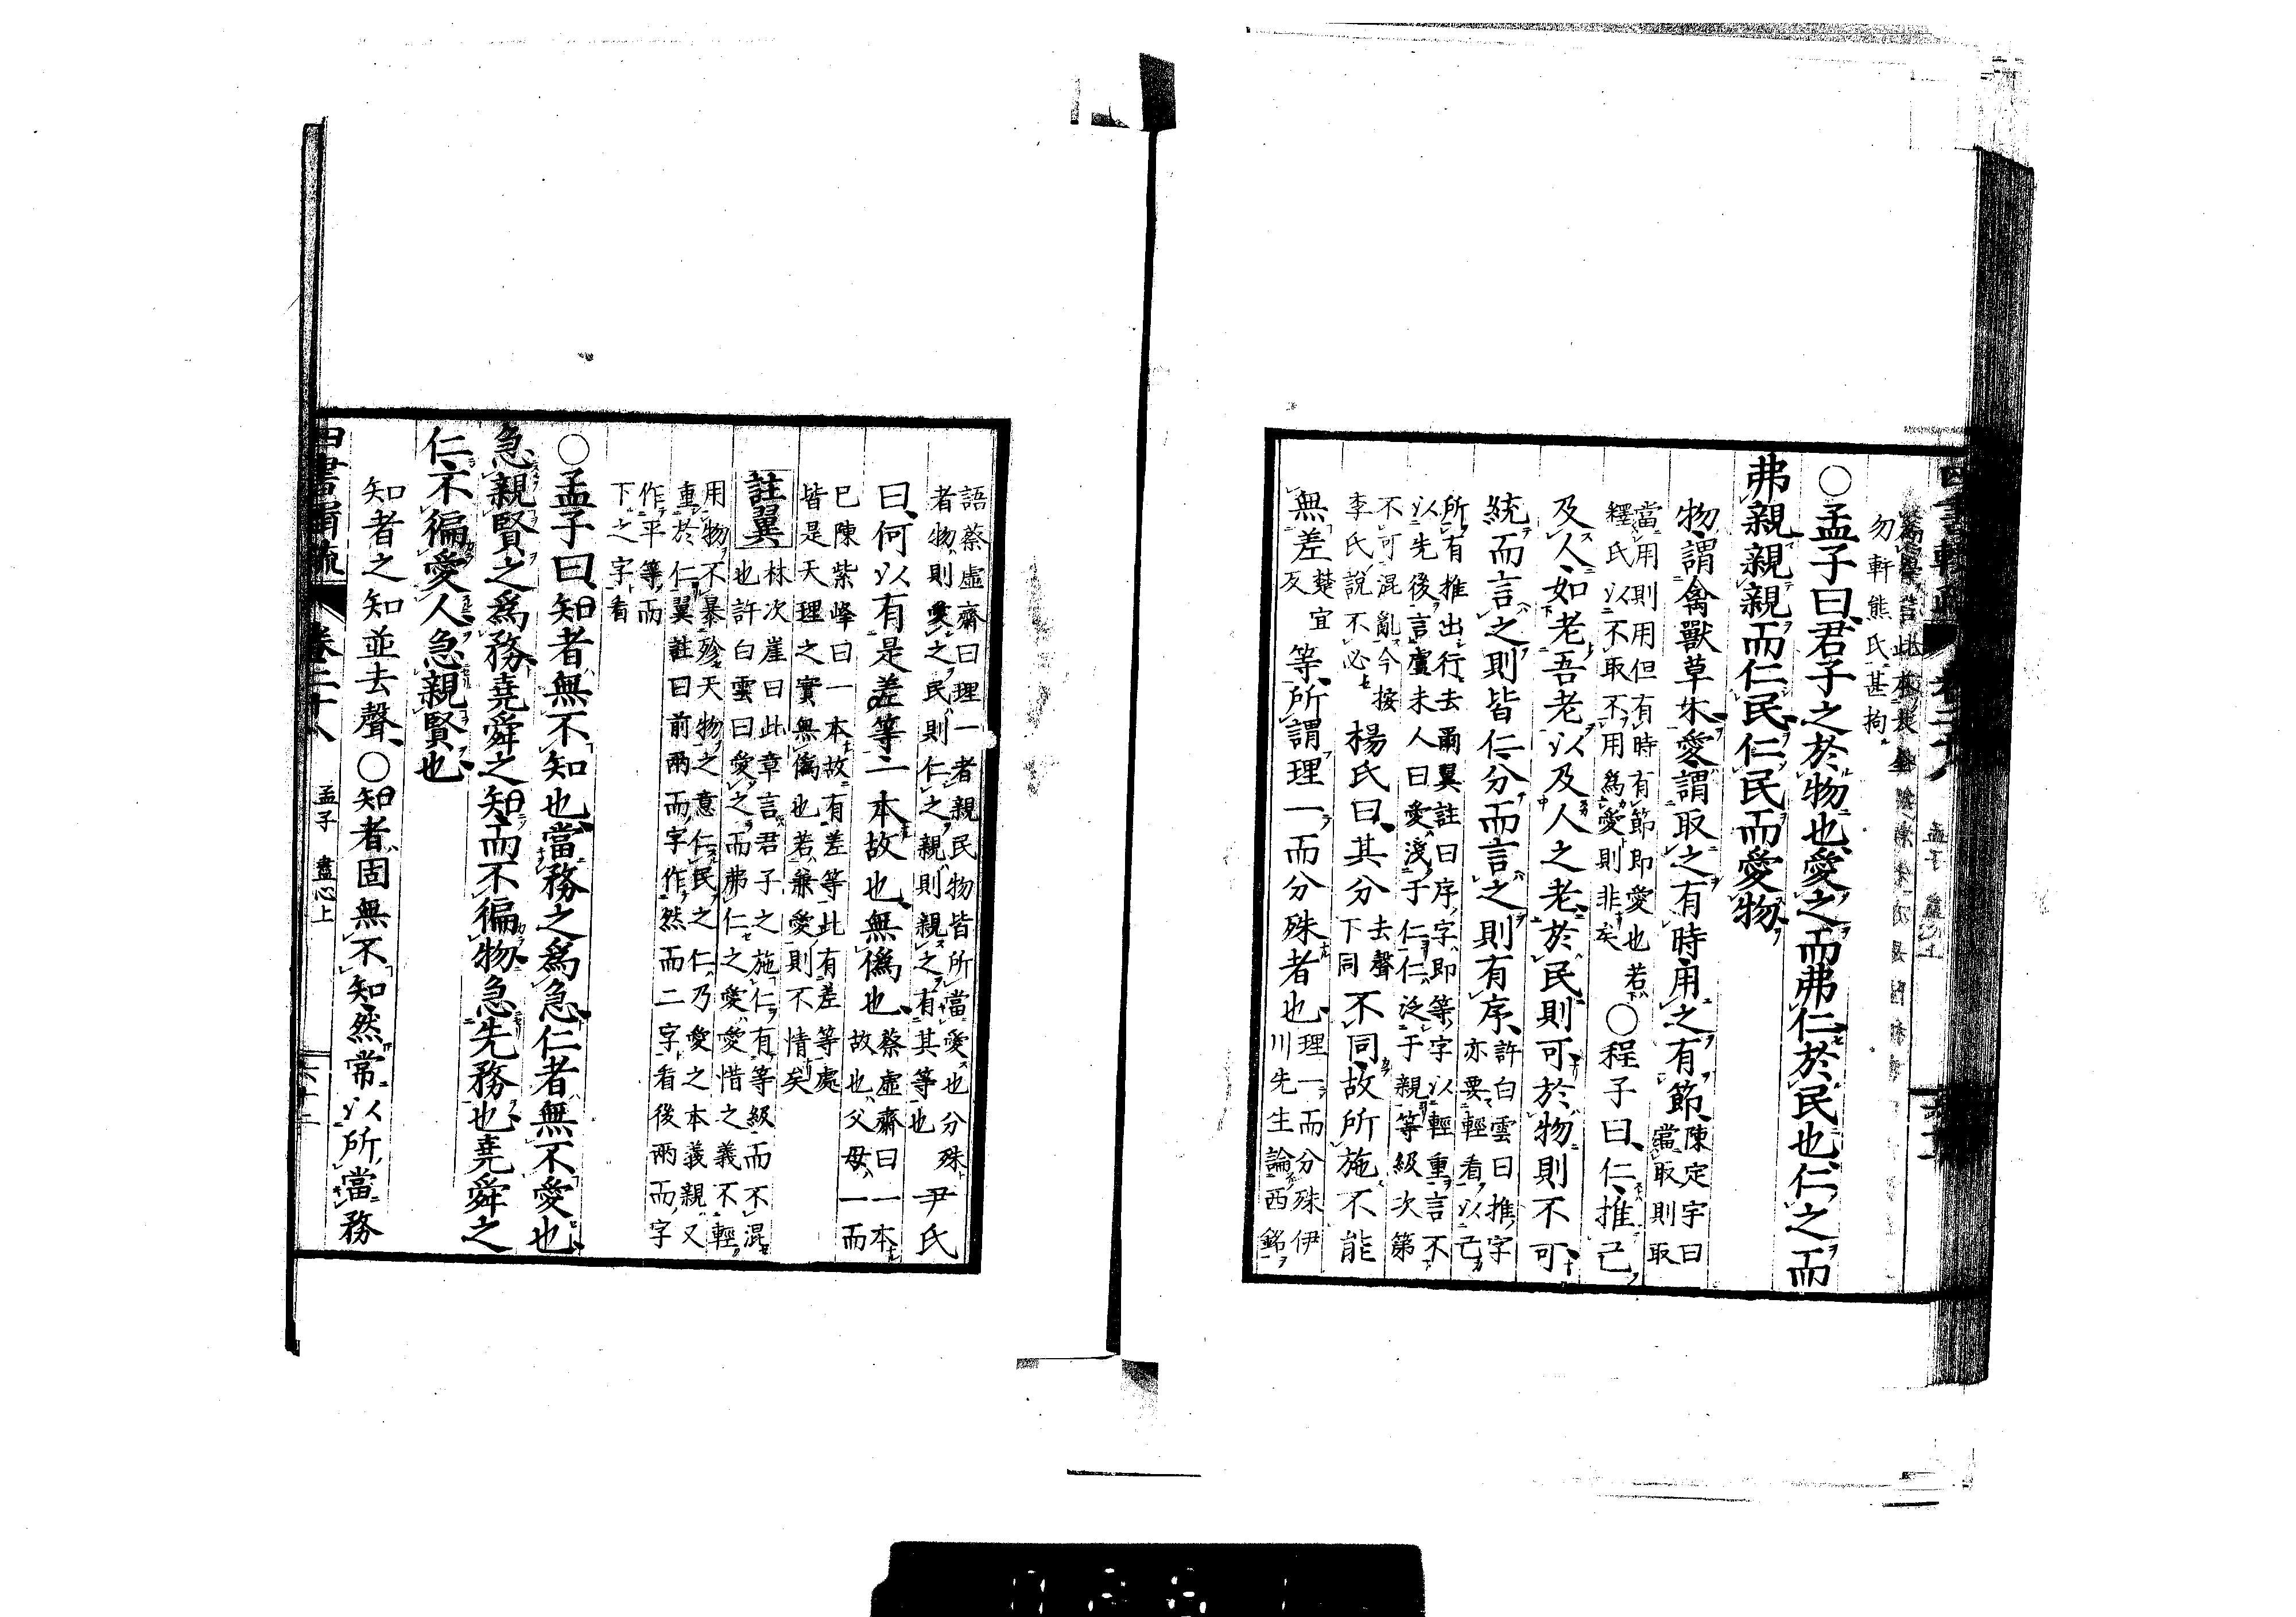 勿軒熊氏甚拘
○孟子曰君子之於物也愛之而弗仁於民也仁之而
弗親親親而仁民仁民而愛物
物謂禽獸草木愛謂取之有時用之有節陳定宇曰
當取則取
當用則用但有時有節即愛也若
釋氏以不取不用為愛則非矣
○程子曰仁推己
及人如老吾老以及人之老於民則可於物則不可
統而言之則皆仁分而言之則有序許白雲曰推字
亦要輕看以己
所有推出行去爾翼註曰序字即等字以輕重言不
以先後言盧未人曰愛淺于仁仁泛于親等級次第
不可混亂今按
李氏說不必
楊氏曰其分去聲
下同
不同故所施不能
無差楚宜
反
等所謂理一而分殊者也理一而分殊伊
川先生論西銘
語蔡虛齋曰理一者親民物皆所當愛也分殊
者物則愛之民則仁之親則親之有其等也
尹氏
曰何以有是差等一本故也無僞也蔡虛齋曰一本
故也父母一而
已陳紫峰曰一本故有差等此有差等處
皆是天理之實無僞也若兼愛則不情矣
註翼
林次崖曰此章言君子之施仁有等級而不混
也許白雲曰愛之而弗仁之愛愛惜之義不輕
用物不暴殄天物之意仁民之仁乃愛之本義親又
重於仁翼註曰前兩而字作然而二字看後兩而字
作平等而
下之字看
○孟子曰知者無不知也當務之爲急仁者無不愛也
急親賢之爲務堯舜之知而不徧物急先務也堯舜之
仁不徧愛人急親賢也
知者之知並去聲○知者固無不知然常以所當務
卷二十八
孟子 盡心上